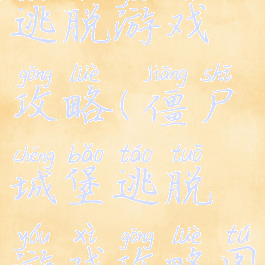 逃脱游戏
gōng lüè jiāng shī
攻略(僵尸
chéng bǎo táo tuō
城堡逃脱
yóu xì gōng lüè tú